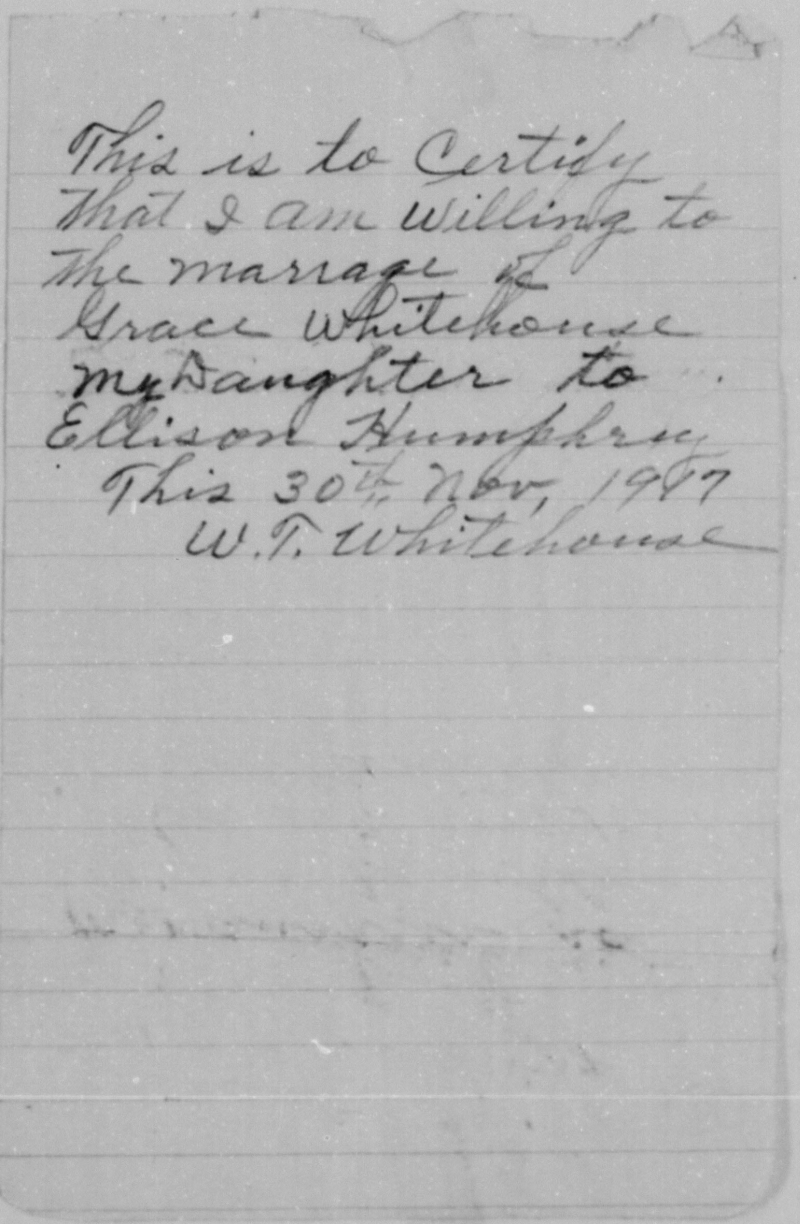 This is to Certify
that I am Willing to
the marrage of
Grace Whitehouse
My Daughter to
Ellison Humphrey
This 30th Nov, 1917
W. T. Whitehouse